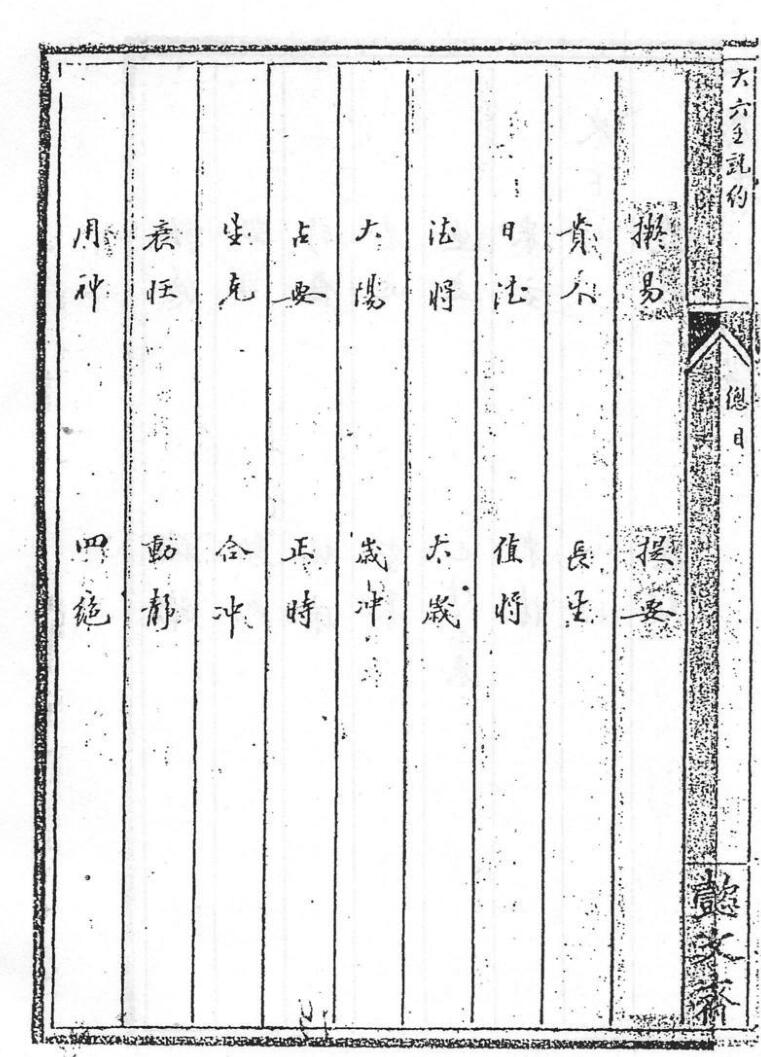 大六壬說約
總目
懿文齋
易 提要
貴人 長生
日 值將
將 太歲
太陽 歲冲
占要 正時
生克 合冲
衰旺 動靜
用神 四絕